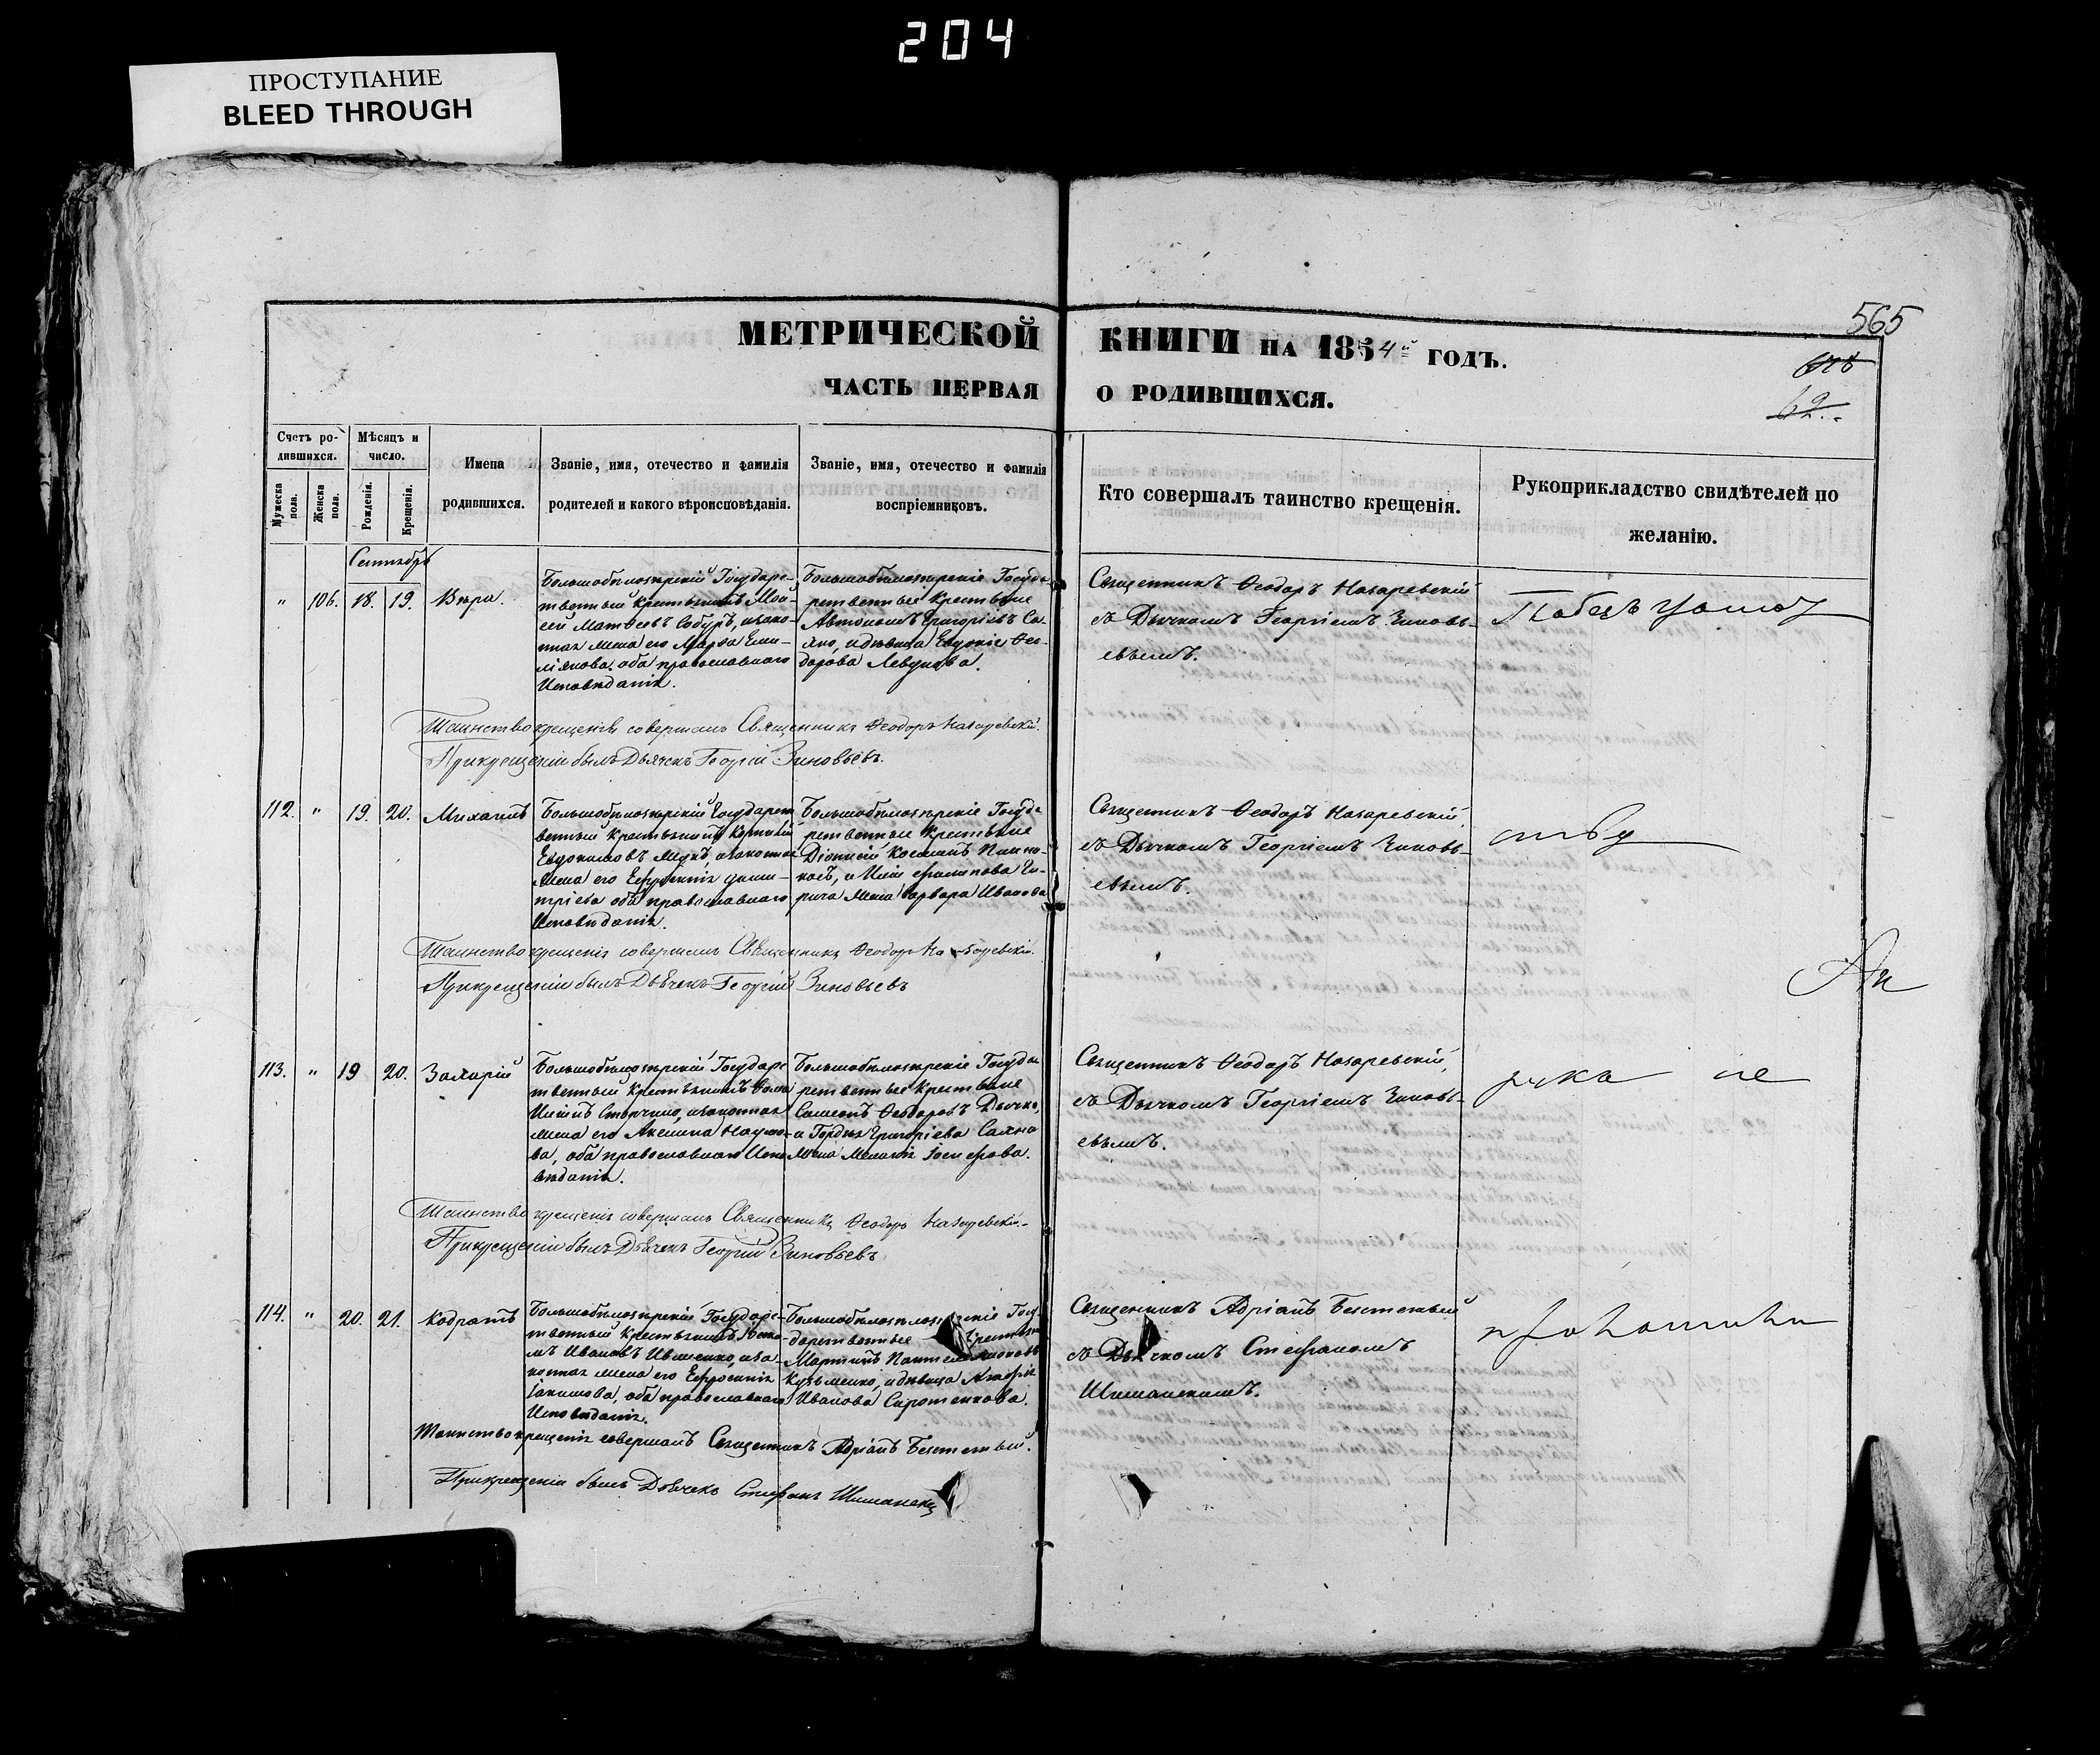 204
ПРОСТУПАНИЕ
BLEED THROUGH
565
МЕТРИЧЕСКОЙ КНИГИ НА 1854й ГОДЪ.
62.
ЧАСТЬ ПЕРВАЯ О РОДИВШИХСЯ.
Счетъ ро-
дившихся.
Мужеска пола.
Женска пола.
Мѣсяцъ и
число.
Рожденія.
Крещенія.
Имена
родившихся.
Званіе, имя, отечество и фамилія
родителей и какого вѣроисповѣданія.
Званіе, имя, отечество и фамилія
воспріемниковъ.
Кто совершалъ таинство крещенія.
Рукоприкладство свидѣтелей по
желанію.
Сентябрь
" 106. 18. 19. Вѣра.
Большобѣлозерскій Государс-
твенный Крестьянинъ Мои-
сей Матвеевъ Собуръ, изако-
нная жена его Марфа Еми-
ліянова, оба православнаго
Исповѣданія.
Большобѣлозерскіе Госуда-
рственные Крестьяне
Автономъ Григоріевъ Са-
хно, и дѣвица Евдокія Ѳео-
дорова Левдикова.
Священникъ Ѳеодоръ Назаревскій
съ Дьячкомъ Георгіемъ Зиновь-
евымъ.
Таинство крещенія совершалъ Священникъ Ѳеодоръ Назаревскій.
При крещеніи былъ Дьячекъ Георгій Зиновьевъ.
112. " 19. 20. Михаилъ
Большобѣлозерскій Государст
венный Крестьянинъ
Евдокимовъ изаконная
жена его Ефросинія Дими-
тріева оба православнаго
Исповѣданія.
Большобѣлозерскіе Госуда
рственные Крестьяне
Діонисій Косминъ
и Иліи Филипова
жена Варвара Иванова
Священникъ Ѳеодоръ Назаревскій,
съ Дьячкомъ Георгіемъ Зиновь-
евымъ.
Таинство крещенія совершалъ Священникъ Ѳеодоръ Назаревскій.
При крещеніи былъ Дьячекъ Георгій Зиновьевъ
113. " 19 20. Захарій
Большобѣлозерскій Государс
твенный Крестьянинъ Ѳома
Ильинъ изаконная
жена его Акилина Наумо-
ва, оба православнаго Испо
вѣданія.
Большобѣлозерскіе Госуда
рственные Крестьяне
Самсонъ Ѳеодоровъ Дьячко,
и Гордѣя Григоріева Сахна
жена Меланія Іосифова.
Священникъ Ѳеодоръ Назаревскій,
съ Дьячкомъ Георгіемъ Зиновь-
евымъ.
Таинство крещенія совершалъ Священникъ Ѳеодоръ Назаревскій.
При крещеніи былъ Дьячекъ Георгій Зиновьевъ
114. " 20. 21. Кодратъ
Большобѣлозерскій Государс-
твенный Крестьянинъ Яко-
въ Ивановъ Ивженко, иза-
конная жена его Ефросинія
Іакимова, оба православнаго
Исповѣданія.
Госу-
дарственные Крестьяне
Мартинъ Пантелеимоновъ
Кузьменко, и дѣвица Агафія
Иванова Сиротенкова.
Священникъ Адріанъ
съ Дьячкомъ Стефаномъ
Шиманскимъ.
Таинство крещенія совершалъ Священникъ Адріанъ
При крещеніи былъ Дьячекъ Стефанъ Шиманскій